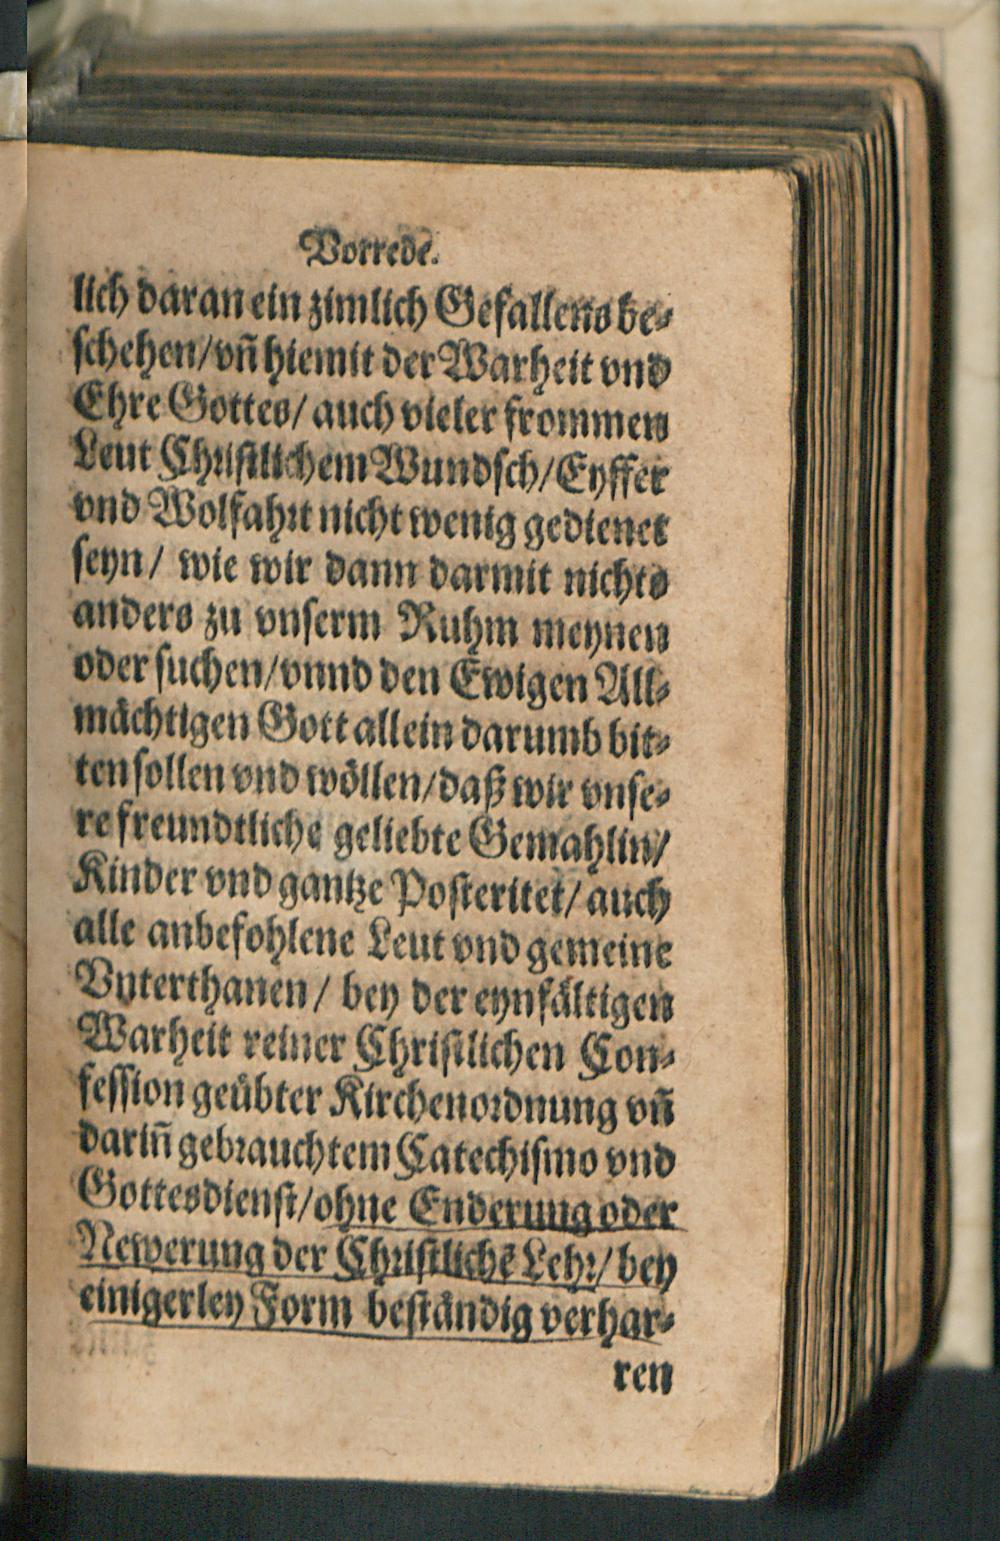 Vorrede.
lich daran ein zimlich Gefallens be-
schehen/ vñ hiemit der Warheit vnd
Ehre Gottes/ auch vieler frommen
Leut Christlichem Wundsch/ Eyffer
vnd Wolfahrt nicht wenig gedienet
seyn/ wie wir dann darmit nichts
anders zu vnserm Ruhm meynen
oder suchen/ vnnd den Ewigen All-
maͤchtigen Gott allein darumb bit-
ten sollen vnd woͤllen/ daß wir vnse-
re freundtliche geliebte Gemahlin/
Kinder vnd gantze Posteritet/ auch
alle anbefohlene Leut vnd gemeine
Vnterthanen/ bey der eynfaͤltigen
Warheit reiner Christlichen Con-
fession geuͤbter Kirchenordnung vñ
dariñ gebrauchtem Catechismo vnd
Gottesdienst/ ohne Enderung oder
Newerung der Christlichẽ Lehr/ bey
einigerley Form bestaͤndig verhar-
ren